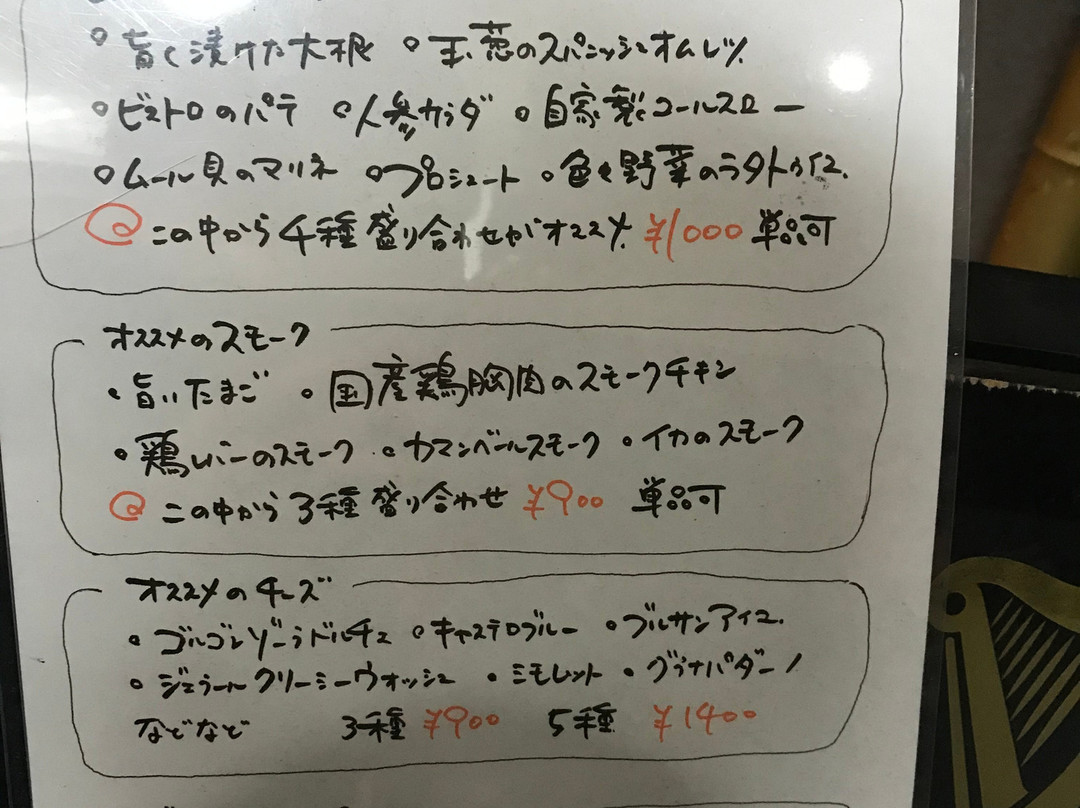 ○旨く漬けた大根 ○玉葱のスパニッシュオムレツ
○ビストロのパテ ○人参サラダ ○自家製コールスロー
○ムール貝のマリネ ○プロシュート ○色々野菜のラタトゥイユ
この中から4種盛り合わせがオススメ ¥1000 単品可
オススメのスモーク
・旨いたまご ・国産鶏胸肉のスモークチキン
・鶏レバーのスモーク ・カマンベールスモーク ・イカのスモーク
この中から3種盛り合わせ ¥900 単品可
オススメのチーズ
・ゴルゴンゾーラドルチェ ・キャステロブルー ・ブルサンアイユ
・ジェラールクリーミーウォッシュ ・ミモレット ・グラナパダーノ
などなど 3種 ¥900 5種 ¥1400